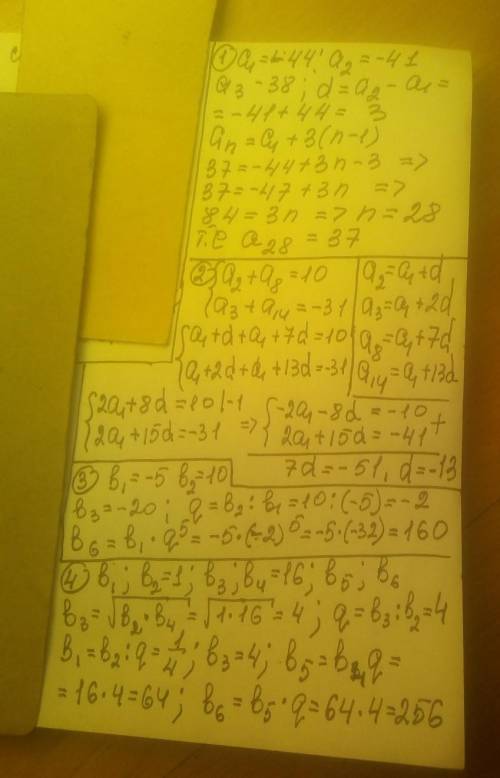 ① a₁ = -44; a₂ = -41
a₃ -38; d = a₂ - a₁ =
= -41 + 44 = 3
aₙ = a₁ + 3(n-1)
37 = -44 + 3n - 3 =>
37 = -47 + 3n =>
84 = 3n => n = 28
т.е a₂₈ = 37
② { a₂ + a₈ = 10
a₃ + a₁₄ = -31
{ a₁ + d + a₁ + 7d = 10
a₁ + 2d + a₁ + 13d = -31
a₂ = a₁ + d
a₃ = a₁ + 2d
a₈ = a₁ + 7d
a₁₄ = a₁ + 13d
{ 2a₁ + 8d = 10 |·-1
2a₁ + 15d = -31
=> { -2a₁ - 8d = -10 +
2a₁ + 15d = -41
7d = -51, d = -13
③ b₁ = -5 b₂ = 10
b₃ = -20; q = b₂ : b₁ = 10 : (-5) = -2
b₆ = b₁ · q⁵ = -5 · (-2)⁵ = -5 · (-32) = 160
④ b₁; b₂ = 1; b₃; b₄ = 16; b₅; b₆
b₃ = √(b₂ · b₄) = √(1·16) = 4; q = b₃ : b₂ = 4
b₁ = b₂ : q = 1/4; b₃ = 4; b₅ = b₄ q =
= 16 · 4 = 64; b₆ = b₅ · q = 64 · 4 = 256